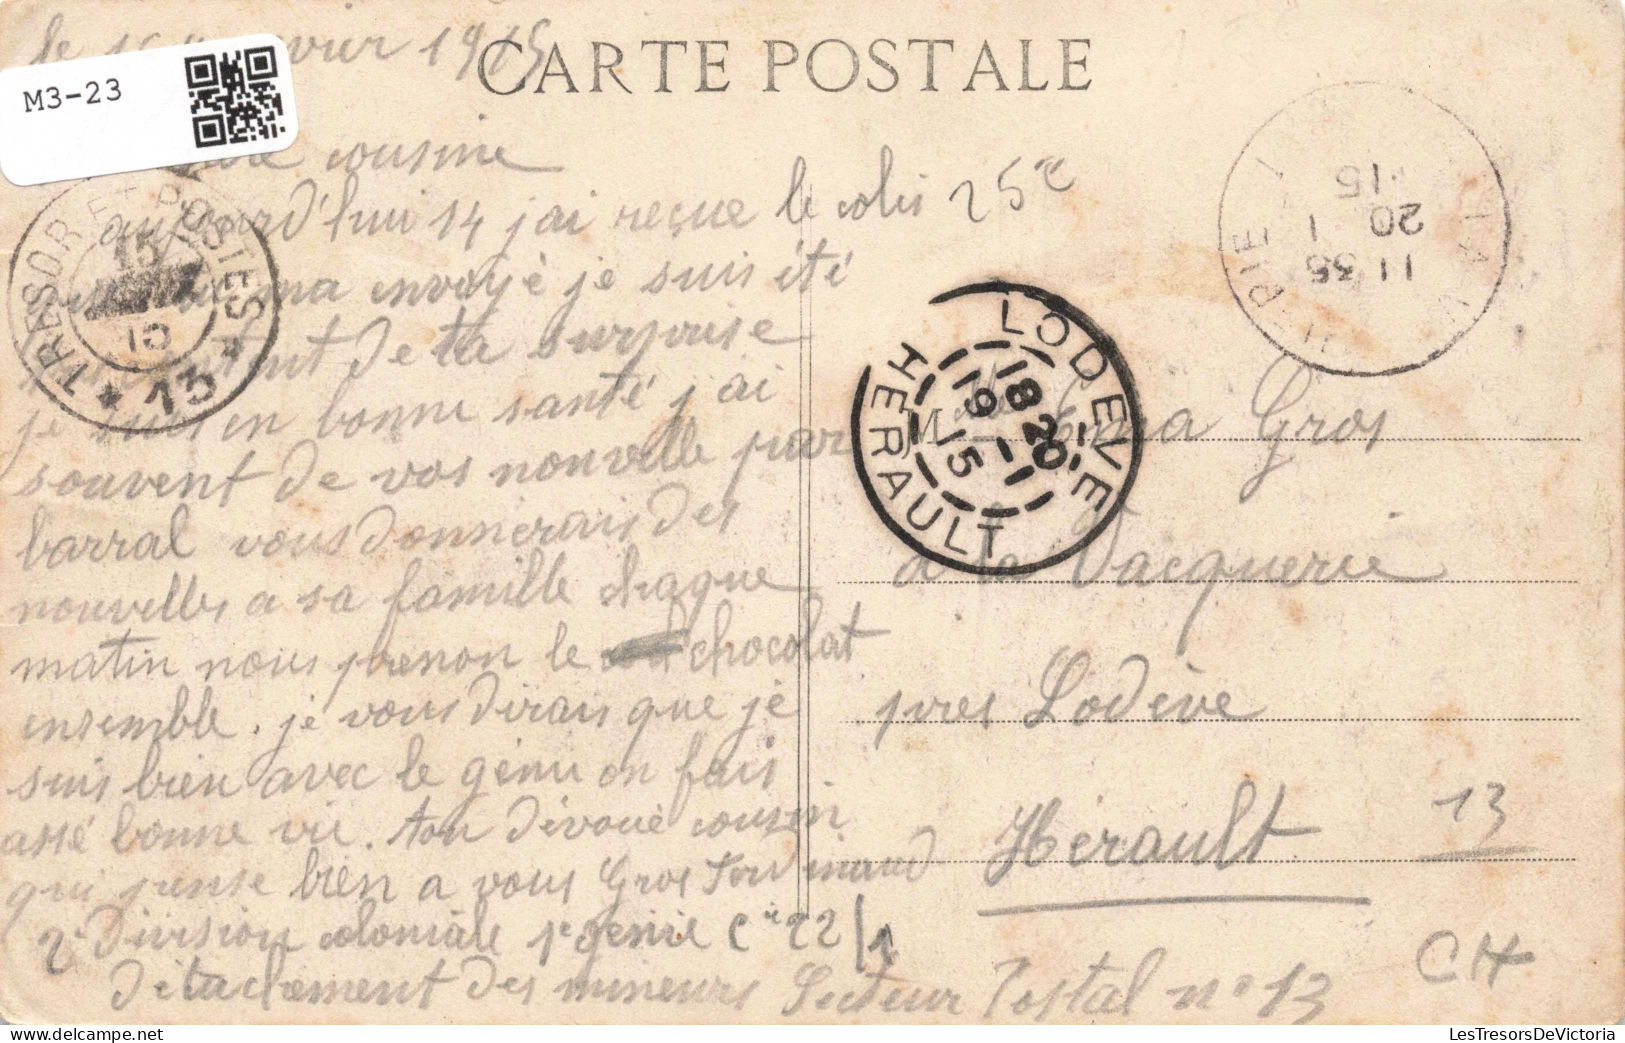 le 1915
CARTE POSTALE
M3-23
cousine
aujourd'hui 14 j ai reçue le colis 25c
ma envoyé je suis été
de ta surprise
je suis en bonne santé j ai
souvent de vos nouvelle par
barral vous donnerais des
nouvelles a sa famille chaque
matin nous prenon le chocolat
ensemble. je vous dirais que je
suis bien avec le génie on fais
assé bonne vie. ton dévoué cousin
qui pense bien a vous Gros Ferdinand
2e Division coloniale 1e génie Cie 22/1
Détachement des mineurs Secteur Postal no 13
TRESOR ET POSTES
15
15
* 13 *
LODEVE
18 20
19 - 1
15
HERAULT
LA VACQUERIE
11 35
20 1
15
M Gros
a la Vacquerie
pres Lodève
Hérault
13
CH
LesTresorsDeVictoria